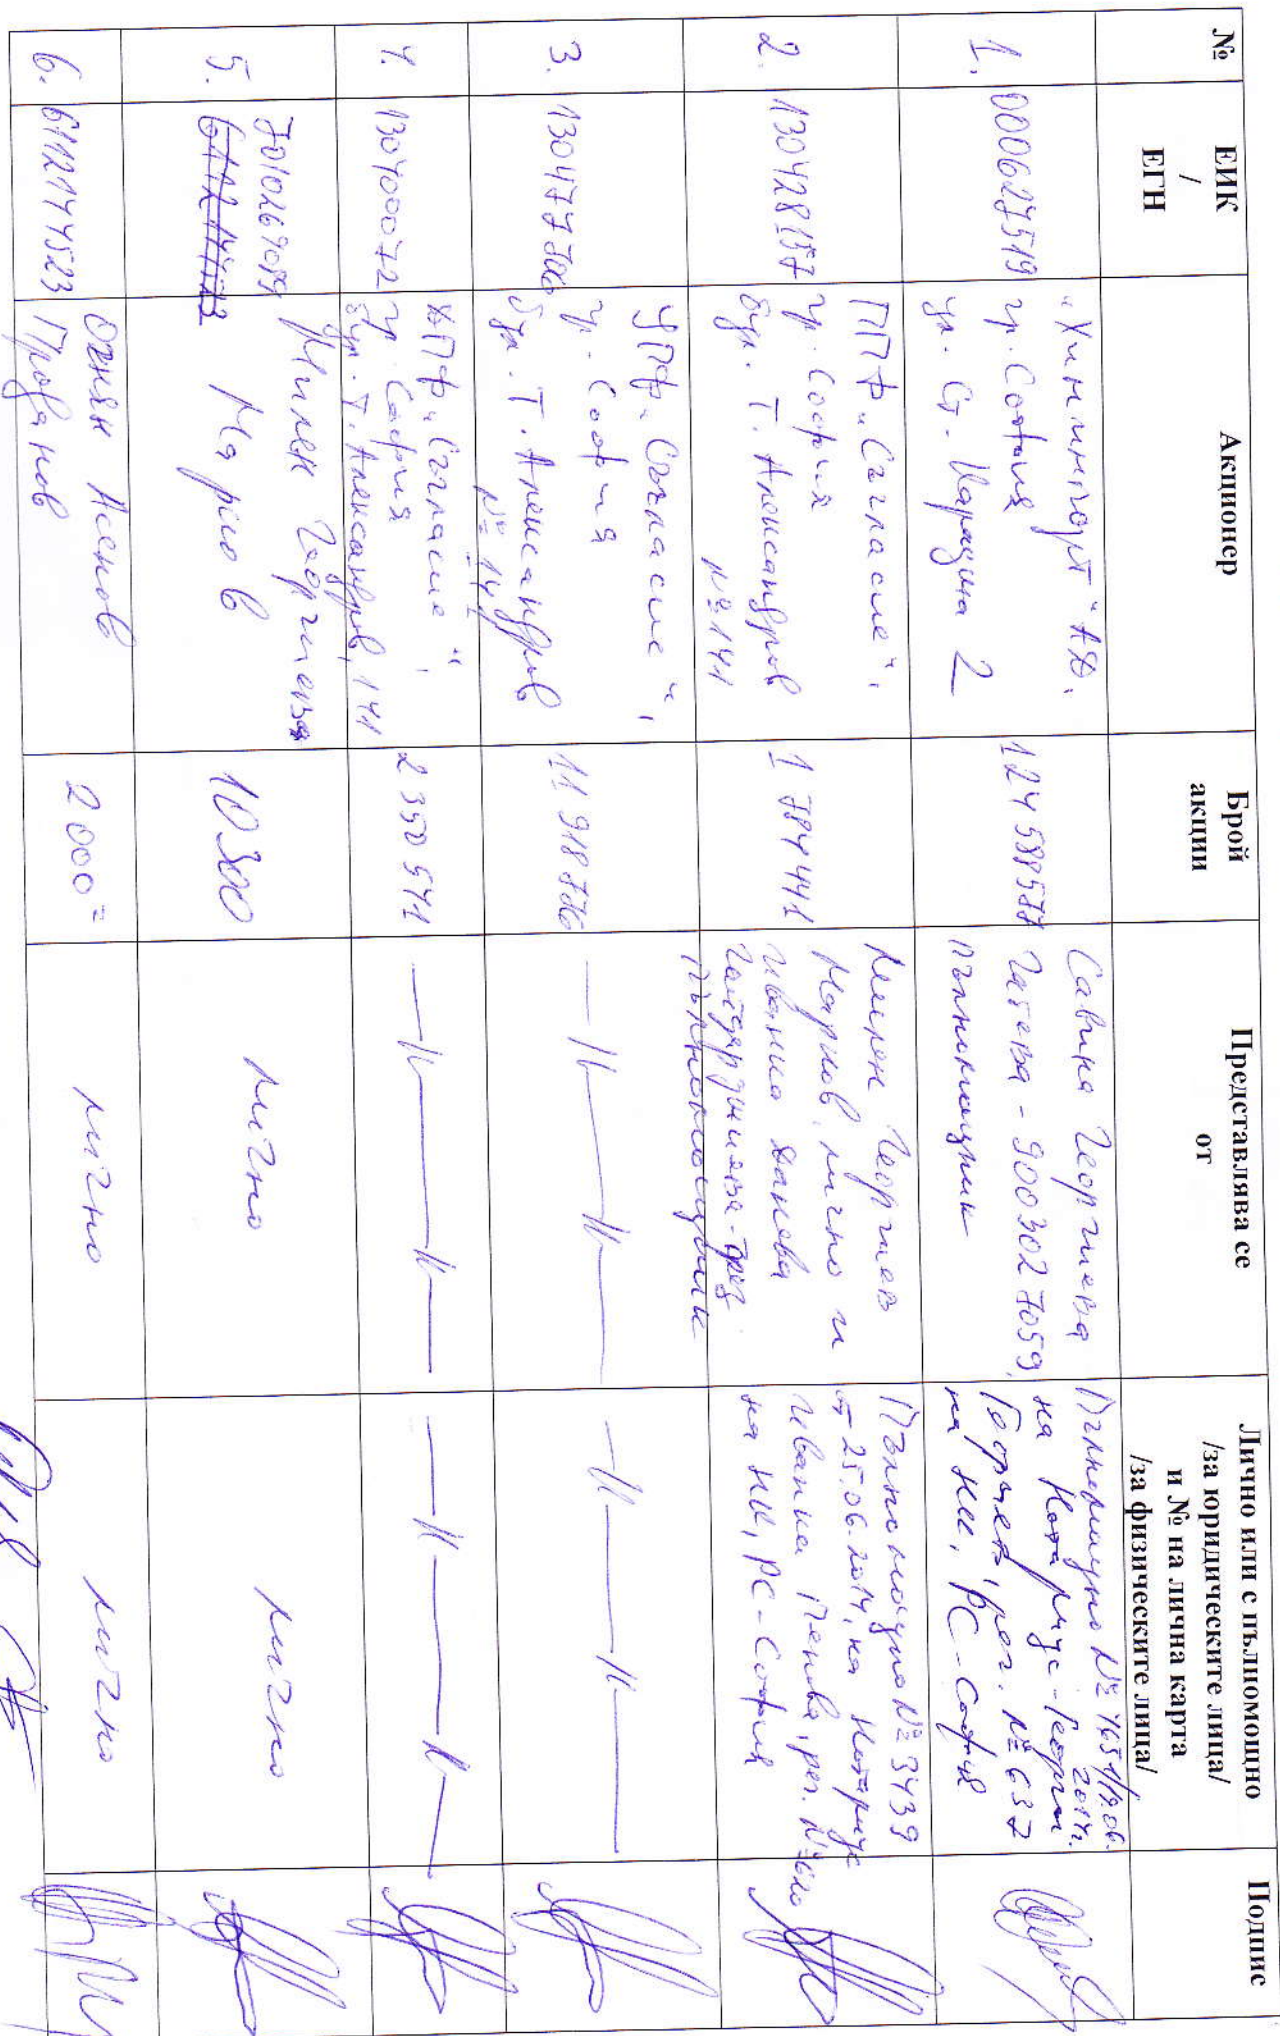 №
ЕИК
/
ЕГН
Акционер
Брой
акции
Представлява се
от
Лично или с пълномощно
/за юридическите лица/
и № на лична карта
/за физическите лица/
Подпис
1.
000627519
"Химимпорт" АД,
гр. София
ул. Ст. Караджа 2
124588577
Савина Георгиева
- 9003027059,
пълномощник
Пълномощно №
на Нотариус - Георги
Георгиев, рег. № 637
на НК, РС - София
2.
130428157
ППФ "Съгласие",
гр. София
бул. Т. Александров
№ 141
1 784 441
Милен Георгиев
Марков, лично и
Иваница Данева
пълномощник
Пълномощно № 3439
от 25.06.2014, на Нотариус
Иванка Пенева, рег. №
на НК, РС - София
3.
УПФ "Съгласие",
гр. София
бул. Т. Александров
№ 141
11 918
—//——//——
—//——//——
4.
130400072
ДПФ "Съгласие",
гр. София
бул. Т. Александров, 141
2 350 541
—//——//——
—//——//——
5.
Милен Георгиев
Марков
10300
лично
лично
6.
6112144523
Огнян Асенов
Проданов
2000=
лично
лично